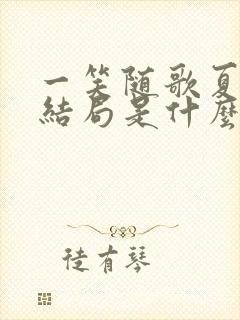 一笑随歌夏
結局是什麼
徒有琴